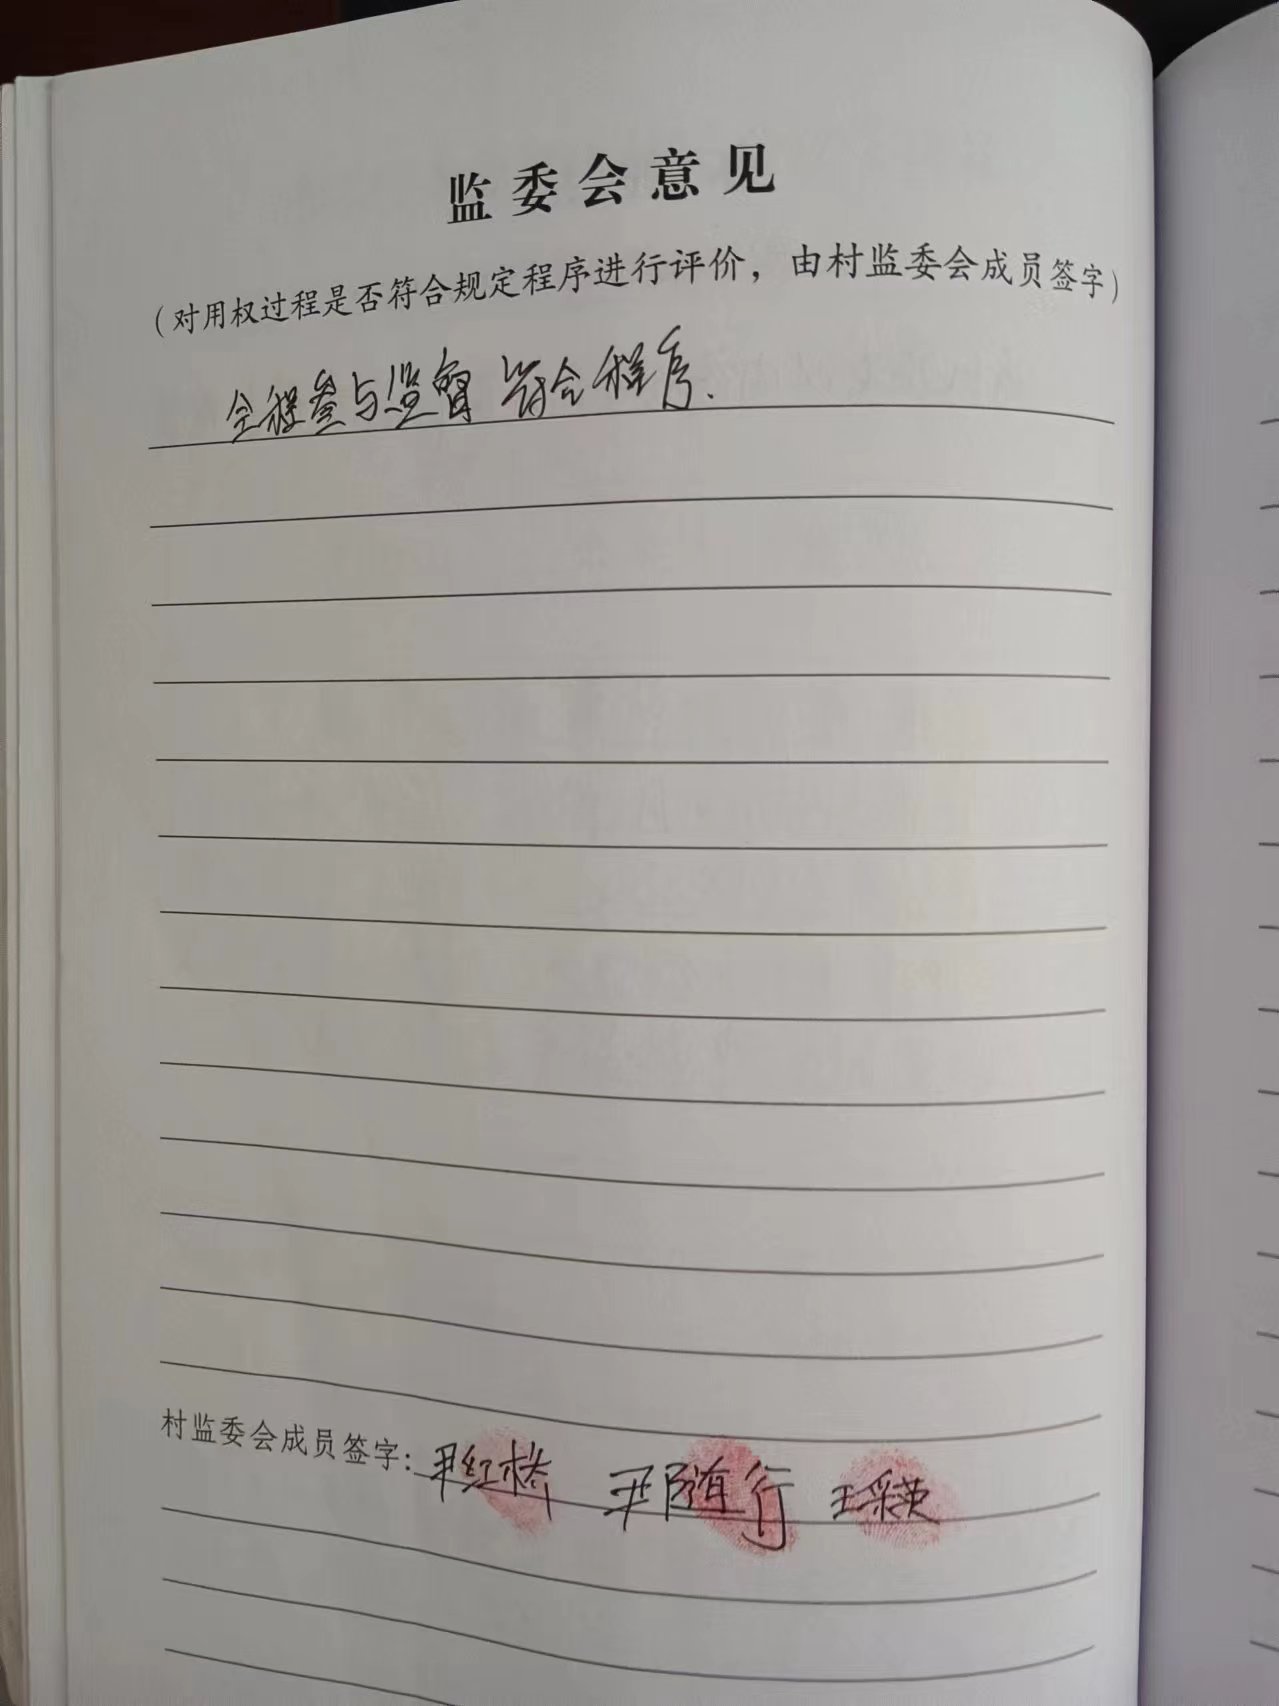 监委会意见
（对用权过程是否符合规定程序进行评价，由村监委会成员签字）
全程参与监督 符合程序.
村监委会成员签字：尹红桥 尹随行 王采英